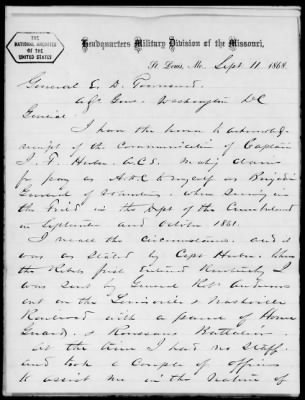 THE
NATIONAL ARCHIVES
OF THE
UNITED STATES
Headquarters Military Division of the Missouri,
St. Louis, Mo. Sept 11 1868
General E. D. Townsend
Washington DC
General
I have the honor to acknowledge
receipt of the Communication of Captain
J. F. A.C.S. Making claim
for pay as A.D.C to myself as Brigadier
General of Volunteers when serving in
the Field in the Dept of the Cumberland
in September and October 1861.
I recall the circumstances and it
was as stated by Capt When
the Rebels first Entered Kentucky I
was sent by General Robt Anderson
out on the Louisville & Nashville
Railroad with a parcel of Home
Guards & Rousseaus Battalion.
At the time I had no staff
and took a couple of officers
to assist me in the nature of